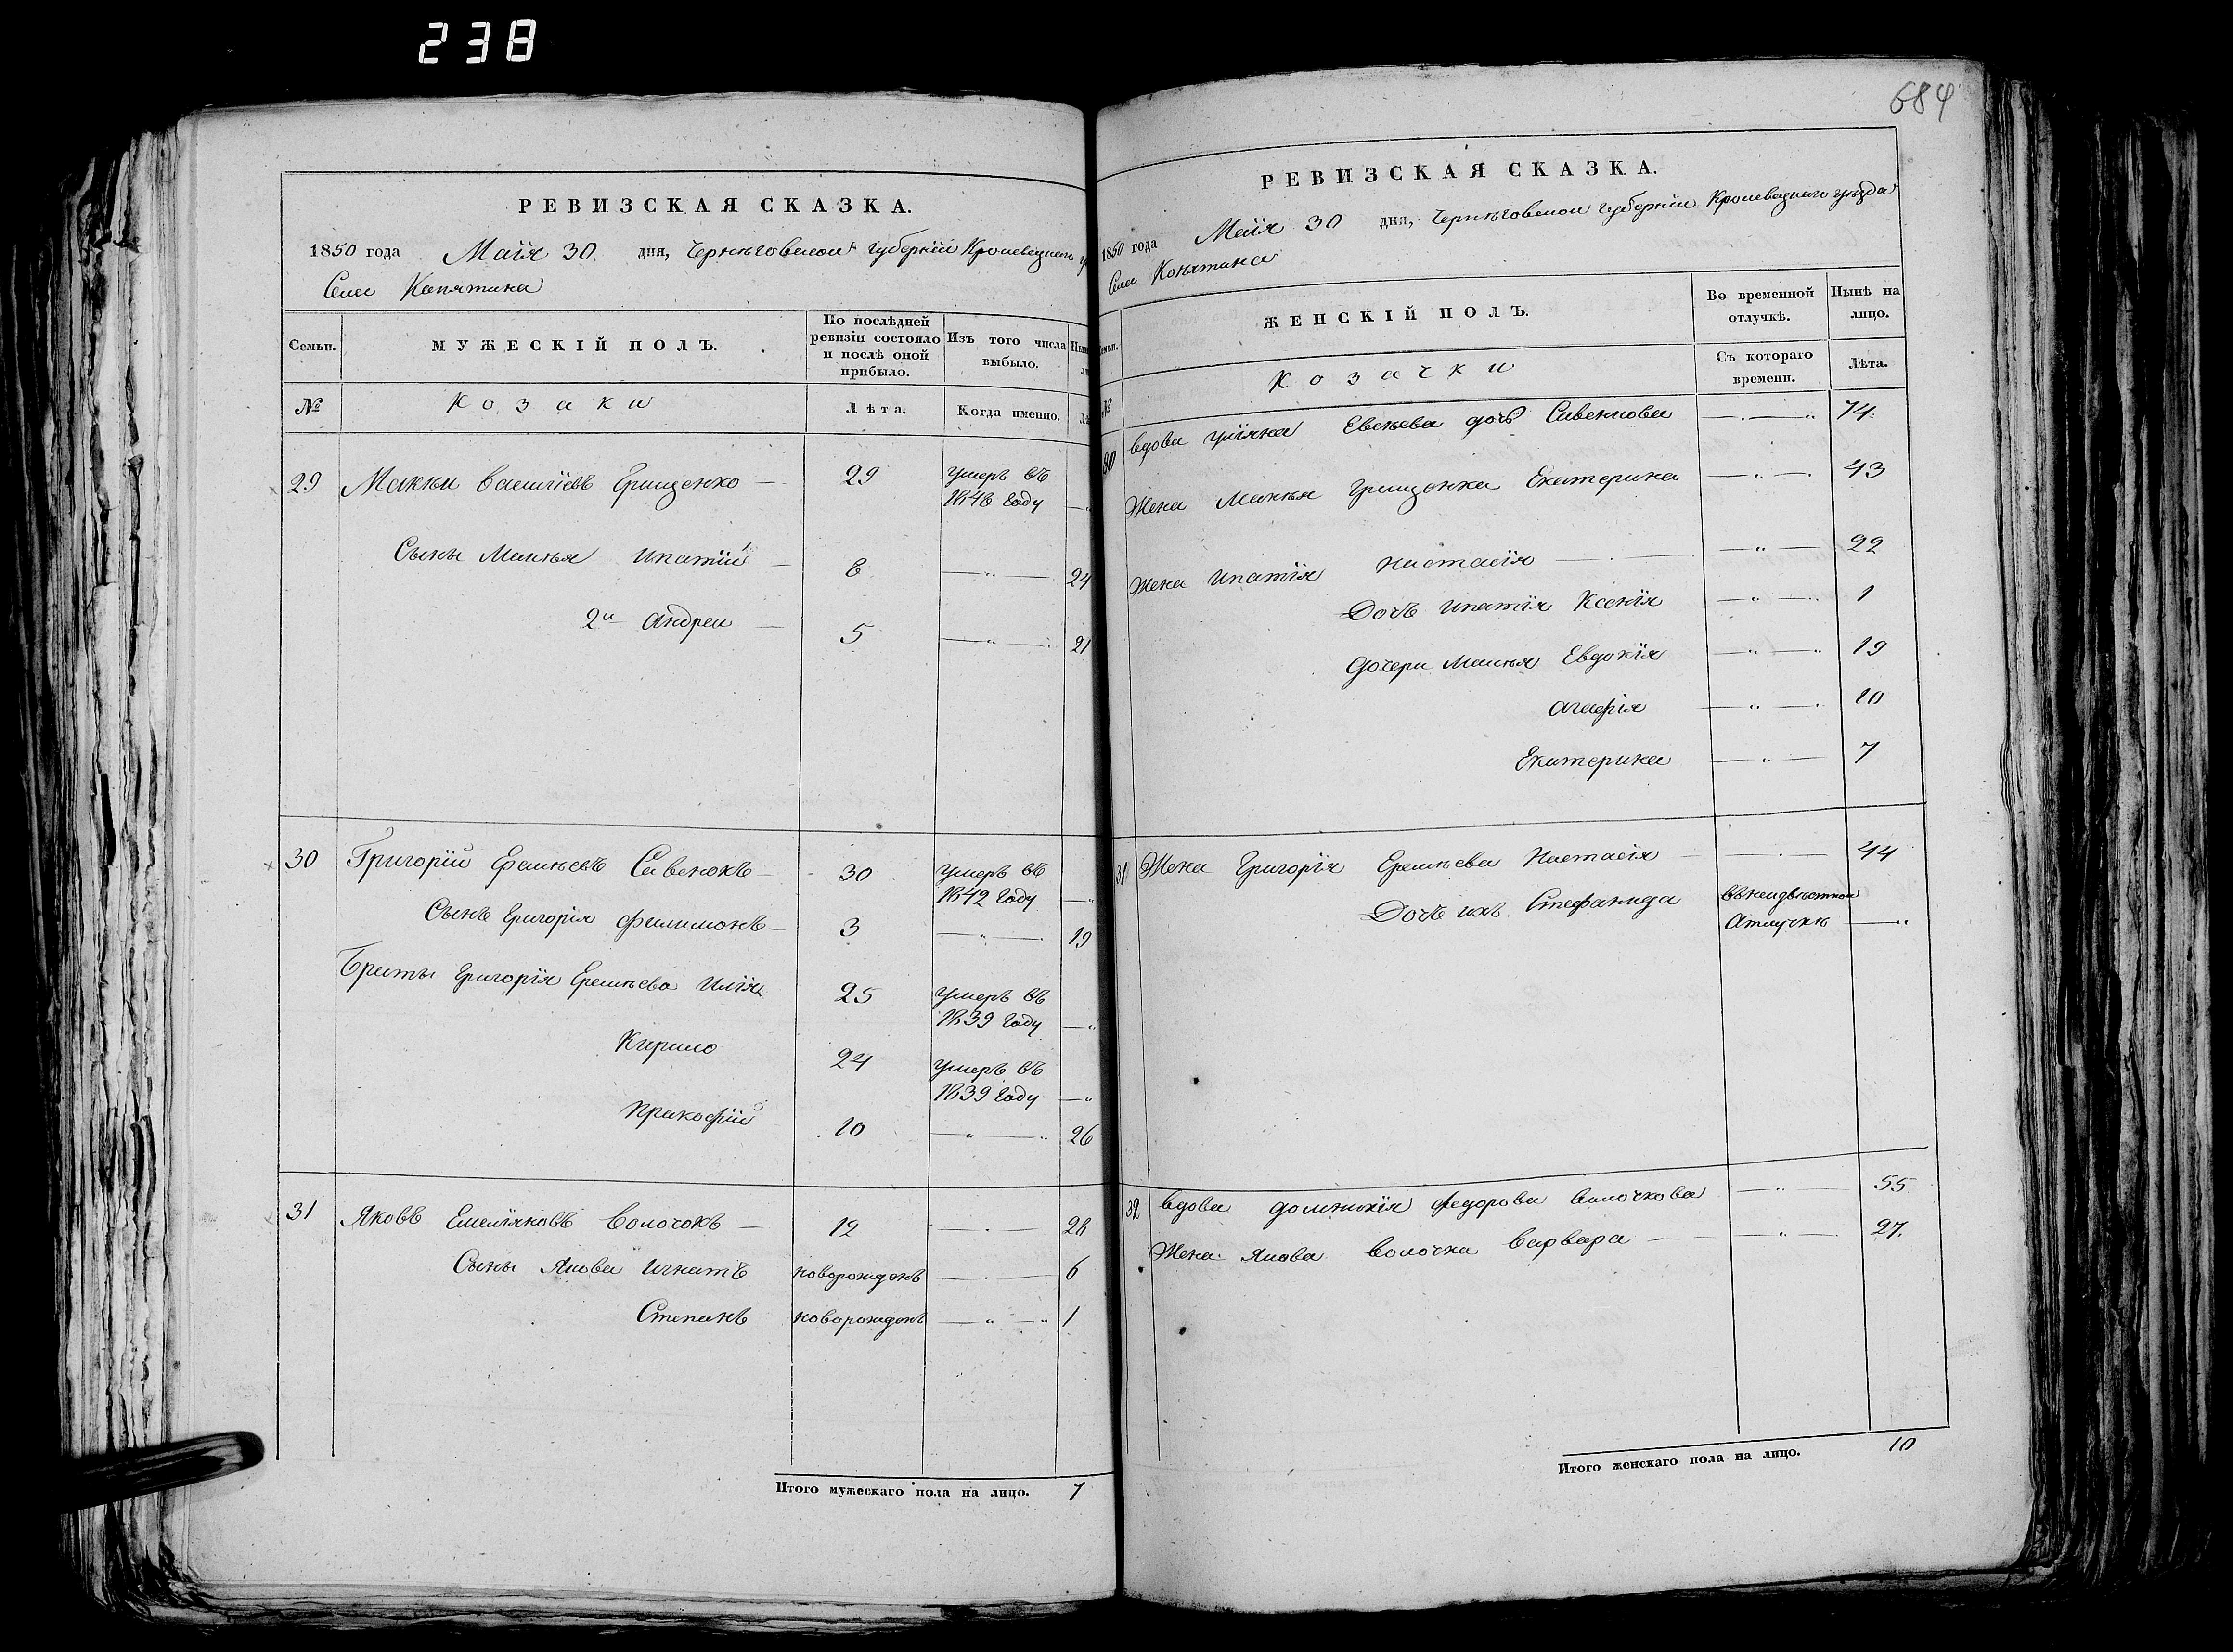 238
684
РЕВИЗСКАЯ СКАЗКА.
1850 года Маія 30 дня, Черниговской губерніи Кролевецкаго
Села Конятина
Семьи.
МУЖЕСКІЙ ПОЛЪ.
По послѣдней ревизіи состояло и послѣ оной прибыло.
Изъ того числа выбыло.
№
Козаки
Лѣта.
Когда именно.
29 Макѣй Васильевъ Грищенко — 29 умеръ въ
1848 году —
Сыны Макѣя Ипатій — 8 — 24
2й Андрей — 5 — 21
30 Григорій Еремѣевъ Савенокъ — 30 умеръ въ
1842 году —
Сынъ Григорія Филимонъ — 3 — 19
Браты Григорія Еремѣева Илія 25 умеръ въ
1839 году —
Кирило 24 умеръ въ
1839 году —
Прокофій 10 — 26
31 Яковъ Емеліяновъ Волочокъ — 12 — 28
Сыны Якова Игнатъ новорожденъ — 6
Степанъ новорожденъ — 1
Итого мужескаго пола на лицо. 7
РЕВИЗСКАЯ СКАЗКА.
1850 года Маія 30 дня, Черниговской губерніи Кролевецкаго уѣзда
Села Конятина
ЖЕНСКІЙ ПОЛЪ.
Во временной отлучкѣ.
Нынѣ на лицо.
№
Козачки
Съ котораго времени.
Лѣта.
30 вдова Уліяна Евсѣева дочь Савенкова — 74
Жена Макѣя Грищенка Екатерина — 43
Жена Ипатія Настасія — 22
Дочь Ипатія Ксенія — 1
Дочери Макѣя Евдокія — 19
10
Екатерина — 7
31 Жена Григорія Еремѣева Настасія — 44
Дочь ихъ Стефанида въ неизвѣстной
Атлучкѣ —
32 вдова Федорова Волочкова — 55
Жена Якова Волочка Варвара — 27.
Итого женскаго пола на лицо. 10